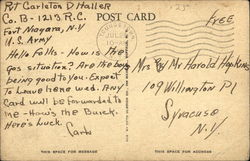 Pvt Carleton D Haller
Co. B - 1213 R.C. POST CARD
Fort Niagara, N.Y
U.S. Army
Free
Hello Folks - How is the
gas situation? Are the boys
being good to you - Expect
to leave here wed. Any
card will be forwarded to
me - How's the Buick.
Here's Luck.
Carl
Mr Harold
109 Williamson Pl
Syracuse
N.Y.
THIS SPACE FOR MESSAGE
THIS SPACE FOR ADDRESS